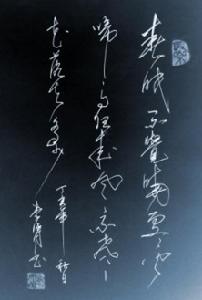 春眠不覺曉處々聞
啼鳥夜來風雨聲
花落知多少
丁亥年秋